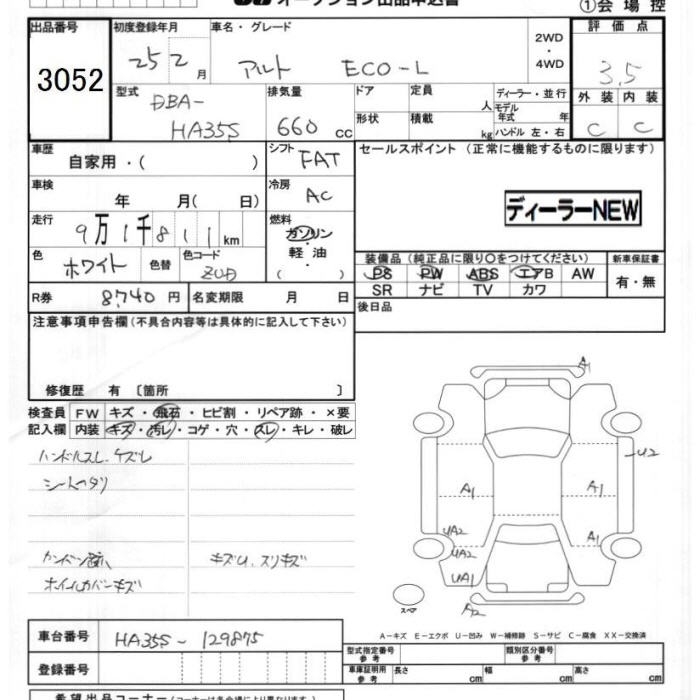 オークション出品申込書
①会場控
出品番号
3052
初度登録年月
25 2月
車名・グレード
アルト ECO-L
2WD・4WD
評価点
3.5
外装 内装
C C
型式
DBA-
HA35S
排気量
660cc
ドア
形状
定員
人
積載
kg
ディーラー・並行
モデル年式 年
ハンドル 左・右
車歴
自家用・( )
シフト
FAT
セールスポイント(正常に機能するものに限ります)
車検
年 月( 日)
冷房
AC
ディーラーNEW
走行
9万1千811km
燃料
ガソリン・軽油
( )
色
ホワイト
色替
色コード
装備品(純正品に限り○をつけてください)
PS PW ABS エアB AW
SR ナビ TV カワ
新車保証書
有・無
R券
8,740円
名変期限 月 日
後日品
注意事項申告欄(不具合内容等は具体的に記入して下さい)
修復歴 有 〔箇所 〕
検査員記入欄
FW キズ・飛石・ヒビ割・リペア跡・×要
内装 キズ・汚レ・コゲ・穴・スレ・キレ・破レ
ハンドルスレ、ケズレ
シートヘタリ
カンバン跡
キズU、スリキズ
ホイルカバーキズ
A1
U2
A1
A1
UA2
UA2
A1
UA1
A2
スペア
A-キズ E-エクボ U-凹み W-補修跡 S-サビ C-腐食 XX-交換済
車台番号
HA35S-129875
登録番号
型式指定番号 参考
類別区分番号 参考
車庫証明用 参考
長さ cm
幅 cm
高さ cm
希望出品コーナー